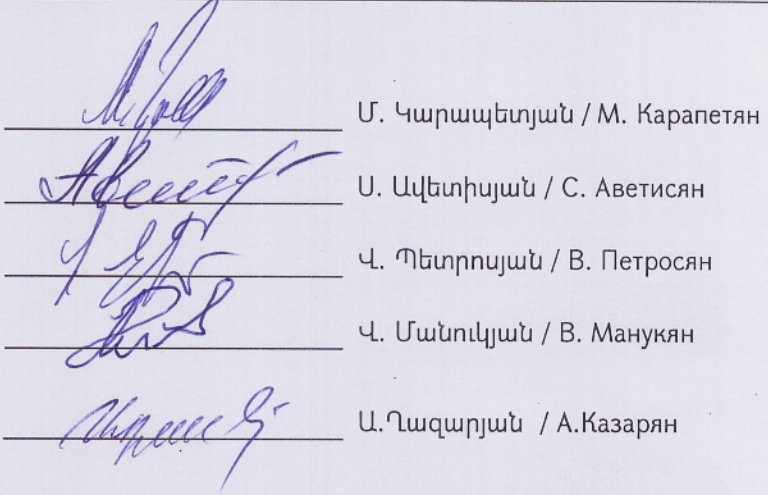 Մ. Կարապետյան / М. Карапетян
Ս. Ավետիսյան / С. Аветисян
Վ. Պետրոսյան / В. Петросян
Վ. Մանուկյան / В. Манукян
Ա.Ղազարյան / А.Казарян